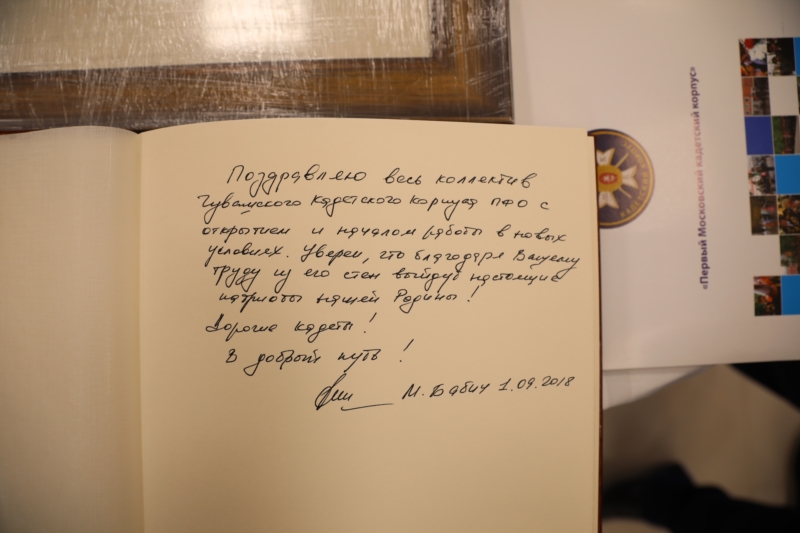 Поздравляю весь коллектив
Чувашского Кадетского корпуса ПФО с
открытием и началом работы в новых
условиях. Уверен, что благодаря Вашему
труду из его стен выйдут настоящие
патриоты нашей Родины!
Дорогие кадеты!
В добрый путь!
М. Бабич 1.09.2018
«Первый Московский кадетский корпус»